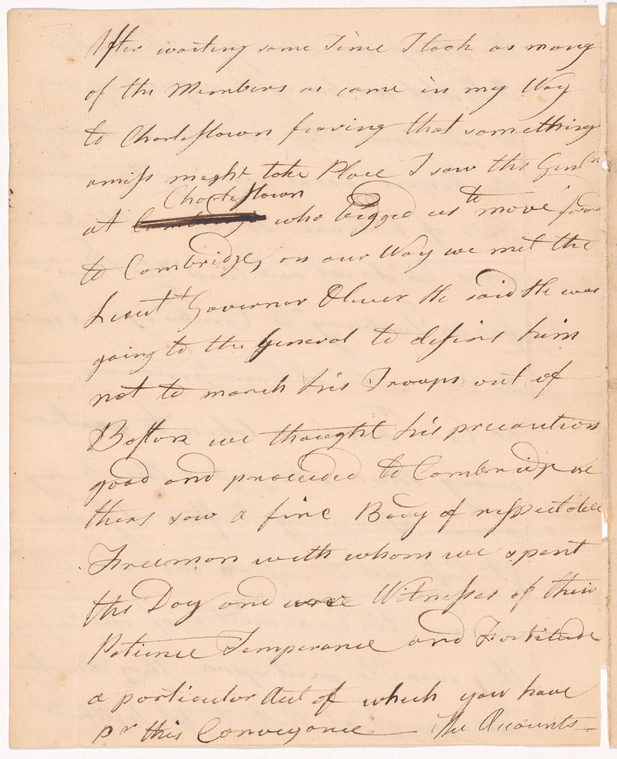 After waiting some Time I took as many
of the Members as came in my Way
to Charlestown fearing that something
amiss might take Place I saw the Gentn
Charlestown
at Cambridge who begged us to move forwd
to Cambridge, on our Way we met the
Lieut Governor Oliver He said He was
going to the General to desire him
not to march his Troops out of
Boston we thought his precaution
good and proceeded to Cambridge we
there saw a fine Body of respectable
Freemen with whom we spent
the Day and were Witnesses of their
Patience Temperance and Fortitude
a particular Acct of which you have
pr this Conveyance — The Accounts